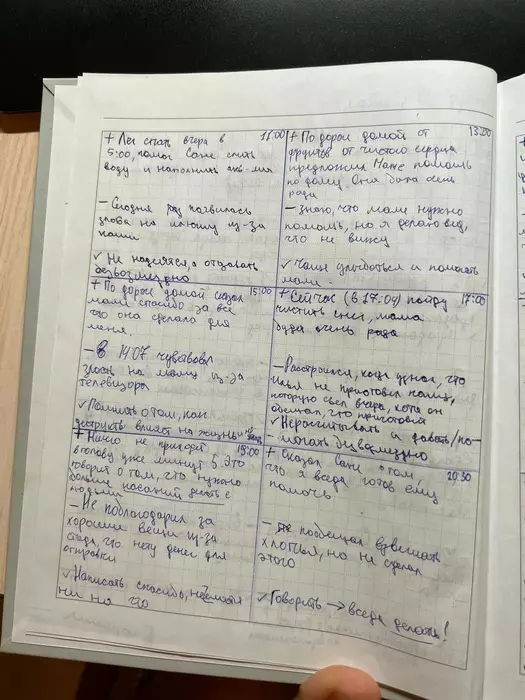 + Лег спать вчера в 11:00
5:00, помог Сане слить
воду и наполнить акв-иум
- Сегодня раз появилась
злоба на из-за
каши
✓ Не надеяться, а отдавать
безвозмездно
+ По дороге домой от 13:00
от чистого сердца
предложил Маме помощь
по дому. Она была очень
рада
- знаю, что маме нужно
помощь, но я делаю вид,
что не вижу
✓ Чаще улыбаться и помогать
маме.
+ По дороге домой сказал 15:00
маме спасибо за всё
что она сделала для
меня.
- В 14:07 чувствовал
злость на маму из-за
телевизора
✓ Помнить о том, как
влияет на жизнь
+ Сейчас (в 17:04) пойду 17:00
чистить снег, мама
будет очень рада
- Расстроился, когда узнал, что
Илья не приготовил кашу,
которую ел вчера, хотя он
обещал, что приготовит
✓ Не рассчитывать и давать/по-
могать безвозмездно
+ Ничего не приходит 19:00
в голову уже минут 5. Это
говорит о том, что нужно
больше касаний делать с
людьми
- Не поблагодарил за
хорошие вещи из-за
стыда, что нету денег для
отправки
✓ Написать спасибо, несмотря
ни на что
+ Сказал Сане о том, 20:30
что я всегда готов ему
помочь
- пообещал взвешивать
хлопья, но не сделал
этого
✓ Говорить → всегда делать!